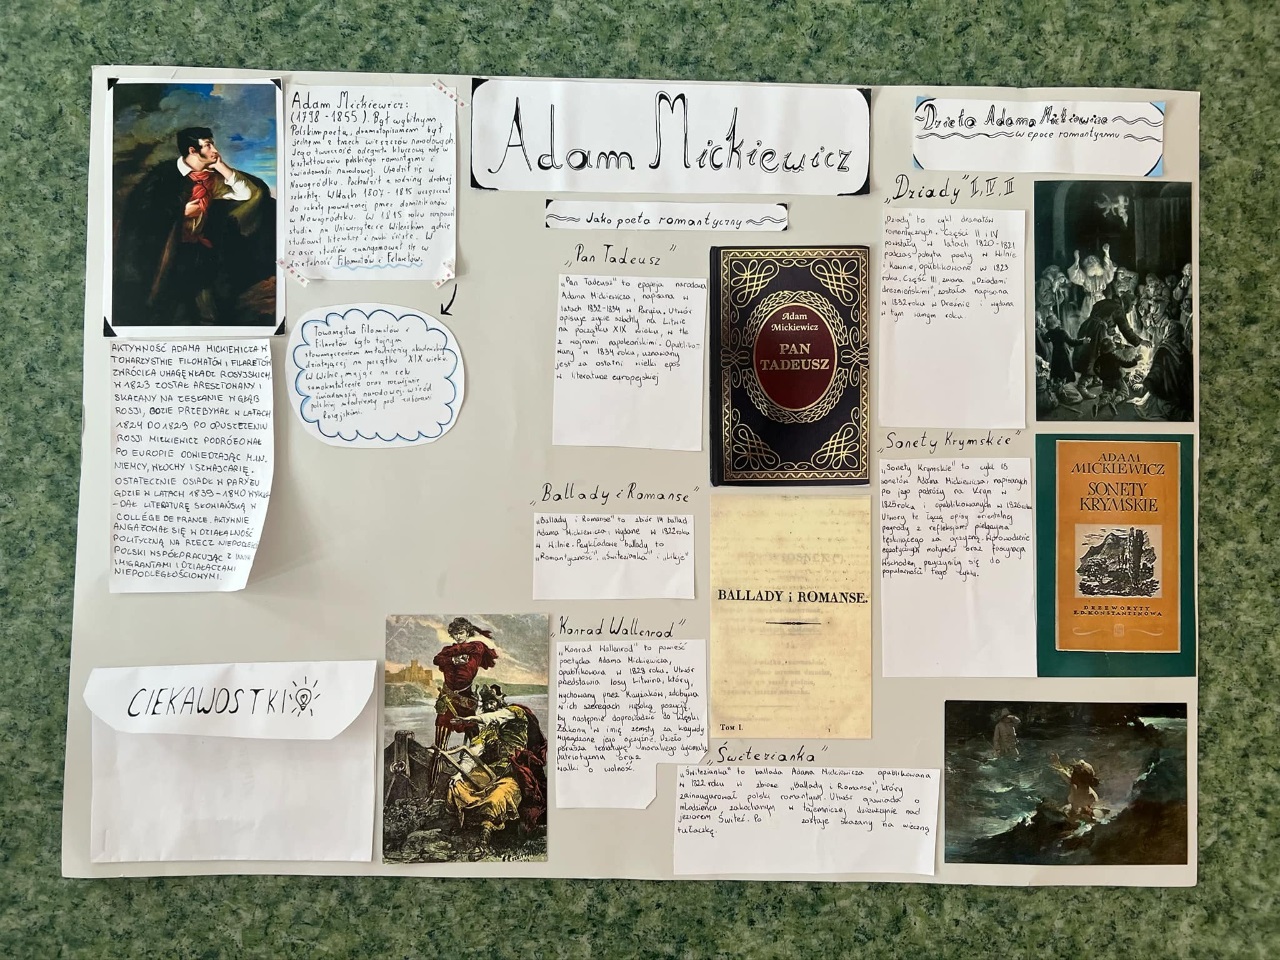 Adam Mickiewicz:
(1798-1855). Był wybitnym
Polskim poetą, dramatopisarzem był
jednym z trzech wieszczów narodowych.
Jego twórczość odegrała kluczową rolę w
kształtowaniu polskiego romantyzmu i
świadomości narodowej. Urodził się w
Nowogródku. Pochodził z rodziny drobnej
szlachty. W latach 1807-1815 uczęszczał
do szkoły prowadzonej przez dominikanów
w Nowogródku. W 1815 roku rozpoczął
studia na Uniwersytecie Wileńskim gdzie
studiował literaturę i nauki ścisłe. W
czasie studiów zaangażował się w
działalność Filomatów i Filaretów.
Towarzystwo Filomatów i
Filaretów było tajnym
stowarzyszeniem młodzieży akademickiej
działającej na początku XIX wieku
W Wilnie, mając na celu
samokształcenie oraz rozwijanie
świadomości narodowej wśród
polskiej młodzieży pod zaborami
Rosyjskimi.
AKTYWNOŚĆ ADAMA MICKIEWICZA W
TOWARZYSTWIE FILOMATÓW I FILARETÓW
ZWRÓCIŁA UWAGĘ WŁADZ ROSYJSKICH.
W 1823 ZOSTAŁ ARESZTOWANY I
SKAZANY NA ZESŁANIE W GŁĄB
ROSJI, GDZIE PRZEBYWAŁ W LATACH
1824 DO 1829 PO OPUSZCZENIU
ROSJI MICKIEWICZ PODRÓŻOWAŁ
PO EUROPIE ODWIEDZAJĄC M.IN.
NIEMCY, WŁOCHY I SZWAJCARIĘ.
OSTATECZNIE OSIADŁ W PARYŻU
GDZIE W LATACH 1839-1840 WYKŁA-
-DAŁ LITERATURĘ SŁOWIAŃSKĄ W
COLLÈGE DE FRANCE. AKTYWNIE
ANGAŻOWAŁ SIĘ W DZIAŁALNOŚĆ
POLITYCZNĄ NA RZECZ NIEPODLEGŁ
POLSKI WSPÓŁPRACUJĄC Z INNYMI
IMIGRANTAMI I DZIAŁACZAMI
NIEPODLEGŁOŚCIOWYMI.
CIEKAWOSTKI
Adam Mickiewicz
Jako poeta romantyczny
„Pan Tadeusz"
„Pan Tadeusz" to epopeja narodowa
Adama Mickiewicza, napisana w
latach 1832-1834 w Paryżu. Utwór
opisuje życie szlachty na Litwie
na początku XIX wieku, w tle
z wojnami napoleońskimi. Opublikow
wany w 1834 roku, uznawany
jest za ostatni wielki epos
w literaturze europejskiej
Adam
Mickiewicz
PAN
TADEUSZ
„Ballady i Romanse"
„Ballady i Romanse" to zbiór 14 ballad
Adama Mickiewicza, wydane w 1822 roku
w Wilnie. Przykładowe ballady to
„Romantyczność", „Świtezianka"
BALLADY i ROMANSE.
Tom I.
„Konrad Wallenrod"
„Konrad Wallenrod" to powieść
poetycka Adama Mickiewicza,
opublikowana w 1828 roku. Utwór
przedstawia losy Litwina, który,
wychowany przez Krzyżaków, zdobywa
w ich szeregach wysoką pozycję,
by następnie doprowadzić do klęski
Zakonu w imię zemsty za krzywdy
wyrządzone jego ojczyźnie. Dzieło
porusza tematykę moralnego dylematu,
patriotyzmu oraz
walki o wolność.
„Świtezianka"
„Świtezianka" to ballada Adama Mickiewicza opublikowana
w 1822 roku w zbiorze „Ballady i Romanse", który
zainaugurował polski romantyzm. Utwór opowiada o
młodzieńcu zakochanym w tajemniczej dziewczynie nad
jeziorem Świteź. Po zostaje skazany na wieczną
tułaczkę.
Dzieła Adama Mickiewicza
w epoce romantyzmu
„Dziady" II, IV, III
„Dziady" to cykl dramatów
romantycznych. Części II i IV
powstały w latach 1820-1821
podczas pobytu poety w Wilnie
i Kownie, opublikowane w 1823
roku. Część III, zwana „Dziadami
drezdeńskimi", została napisana
w 1832 roku w Dreźnie i wydana
w tym samym roku.
„Sonety Krymskie"
„Sonety Krymskie" to cykl 18
sonetów Adama Mickiewicza, napisanych
po jego podróży na Krym w
1825 roku i opublikowanych w 1826 roku.
Utwory te łączą opisy orientalnej
przyrody z refleksjami pielgrzyma
tęskniącego za ojczyzną. Wprowadzenie
egzotycznych motywów oraz fascynacja
Wschodem, przyczyniły się do
popularności tego cyklu.
ADAM
MICKIEWICZ
SONETY
KRYMSKIE
DRZEWORYTY
F.D. KONSTANTINOWA